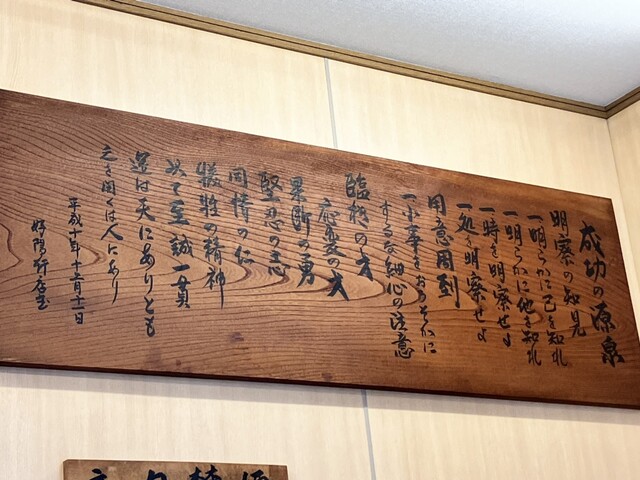 成功の源泉
明察の知見
一明らかに己を知れ
一明らかに他を知れ
一時を明察せよ
一処を明察せよ
用意周到
一小事をおろそかに
するな細心の注意
臨機の才
応変の才
果断の勇
堅忍の志
同情の仁
犠牲の精神
以て至誠一貫
運は天にありとも
之を開くは人にあり
平成十年十二月十一日
好陽軒店主